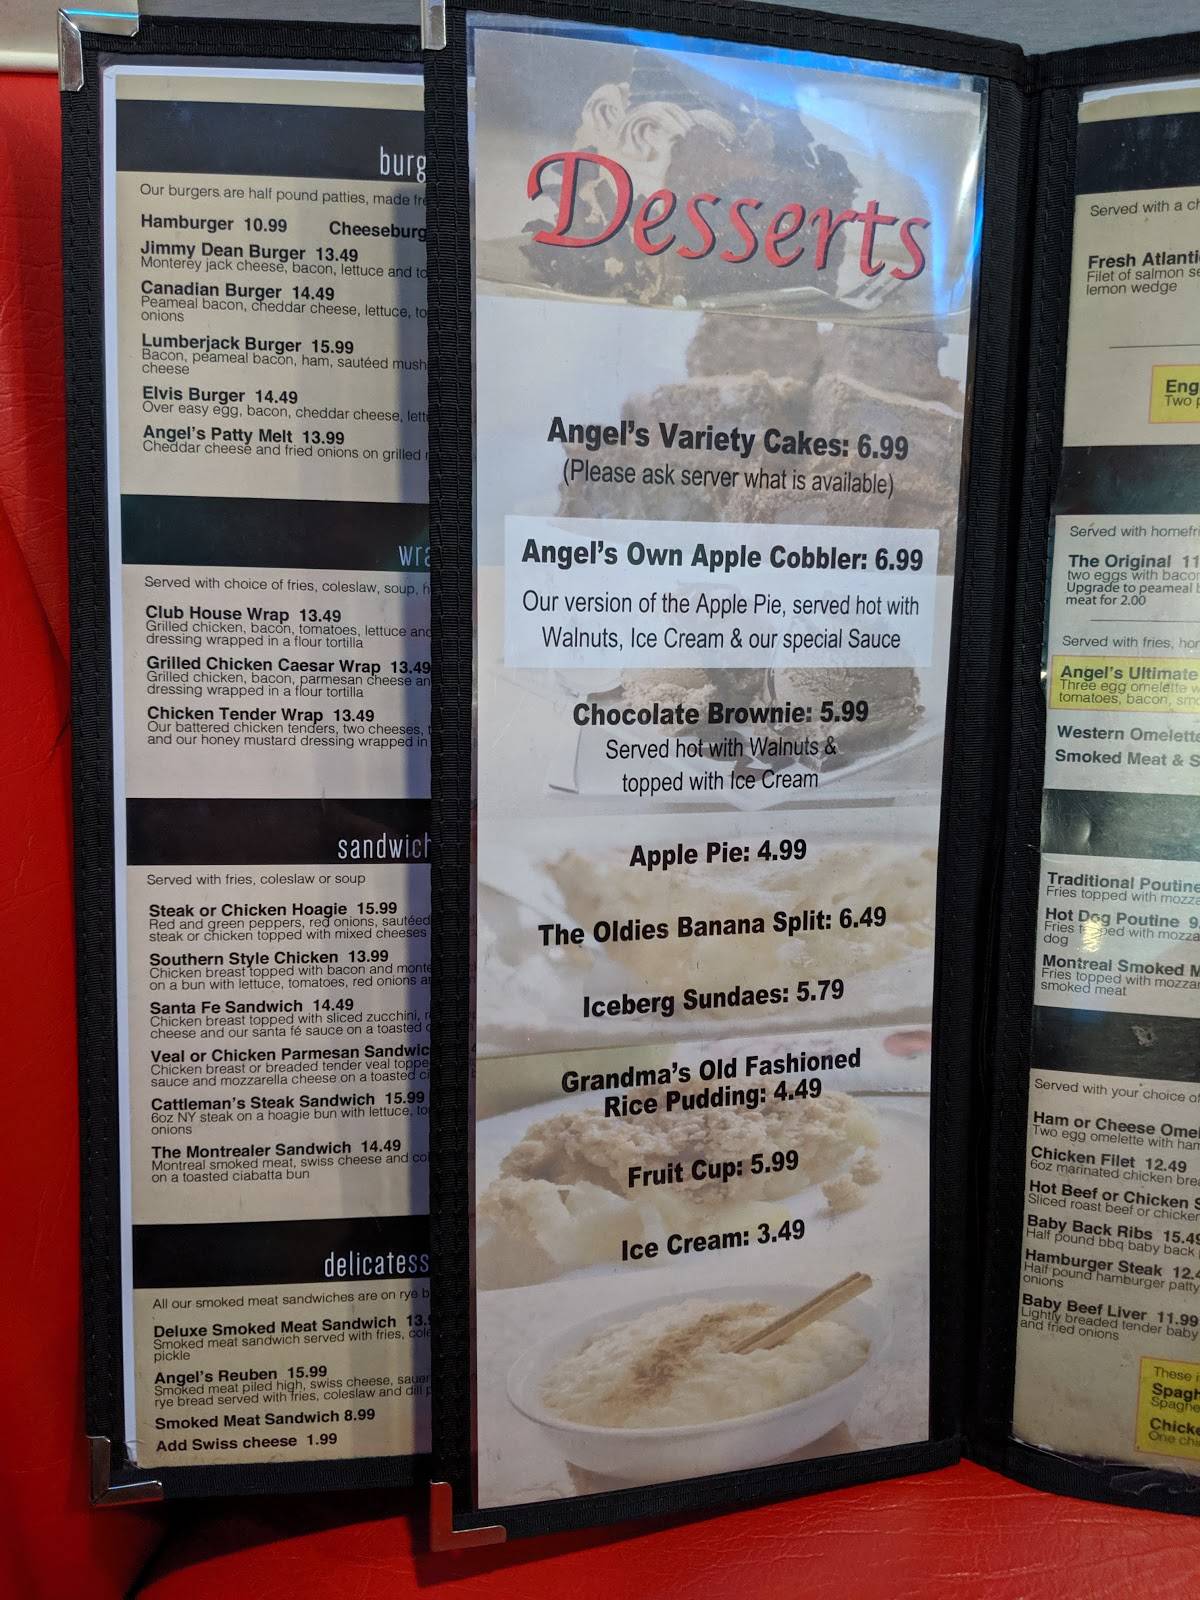 Our burgers are half pound patties, made
Hamburger 10.99
Jimmy Dean Burger 13.49
Monterey jack cheese, bacon, lettuce and
Canadian Burger 14.49
Peameal bacon, cheddar cheese, lettuce,
onions
Lumberjack Burger 15.99
Bacon, peameal bacon, ham, sautéed
cheese
Elvis Burger 14.49
Over easy egg, bacon, cheddar cheese,
Angel's Patty Melt 13.99
Cheddar cheese and fried onions on grilled
Served with choice of fries, coleslaw, soup,
Club House Wrap 13.49
Grilled chicken, bacon, tomatoes, lettuce and
dressing wrapped in a flour tortilla
Grilled Chicken Caesar Wrap 13.49
Grilled chicken, bacon, parmesan cheese
dressing wrapped in a flour tortilla
Chicken Tender Wrap 13.49
Our battered chicken tenders, two cheeses,
and our honey mustard dressing wrapped in
sandwich
Served with fries, coleslaw or soup
Steak or Chicken Hoagie 15.99
Red and green peppers, red onions, sautéed
steak or chicken topped with mixed cheeses
Southern Style Chicken 13.99
Chicken breast topped with bacon and
on a bun with lettuce, tomatoes, red onions
Santa Fe Sandwich 14.49
Chicken breast topped with sliced zucchini,
cheese and our santa fé sauce on a toasted
Veal or Chicken Parmesan
Chicken breast or breaded tender veal
sauce and mozzarella cheese on a toasted
Cattleman's Steak Sandwich 15.99
6oz NY steak on a hoagie bun with lettuce,
onions
The Montrealer Sandwich 14.49
Montreal smoked meat, swiss cheese and
on a toasted ciabatta bun
delicatess
All our smoked meat sandwiches are on rye
Deluxe Smoked Meat Sandwich
Smoked meat sandwich served with fries,
pickle
Angel's Reuben 15.99
Smoked meat piled high, swiss cheese,
rye bread served with fries, coleslaw and dill
Smoked Meat Sandwich 8.99
Add Swiss cheese 1.99
Desserts
Angel's Variety Cakes: 6.99
(Please ask server what is available)
Angel's Own Apple Cobbler: 6.99
Our version of the Apple Pie, served hot with
Walnuts, Ice Cream & our special Sauce
Chocolate Brownie: 5.99
Served hot with Walnuts &
topped with Ice Cream
Apple Pie: 4.99
The Oldies Banana Split: 6.49
Iceberg Sundaes: 5.79
Grandma's Old Fashioned
Rice Pudding: 4.49
Fruit Cup: 5.99
Ice Cream: 3.49
Served with a
Fresh
Filet of salmon
lemon wedge
Served with
The Original
two eggs with
Upgrade to peameal
meat for 2.00
Served with fries,
Angel's Ultimate
Three egg omelette
tomatoes, bacon,
Western Omelette
Smoked Meat &
Traditional Poutine
Fries topped with
Hot Dog Poutine
dog
Montreal Smoked
Fries topped with
smoked meat
Served with your choice
Ham or Cheese
Two egg omelette with
Chicken Filet 12.49
6oz marinated chicken
Hot Beef or Chicken
Sliced roast beef or chicken
Baby Back Ribs 15.49
Half pound bbq baby back
Hamburger Steak
Half pound hamburger patty
onions
Baby Beef Liver 11.99
Lightly breaded tender baby
and fried onions
These